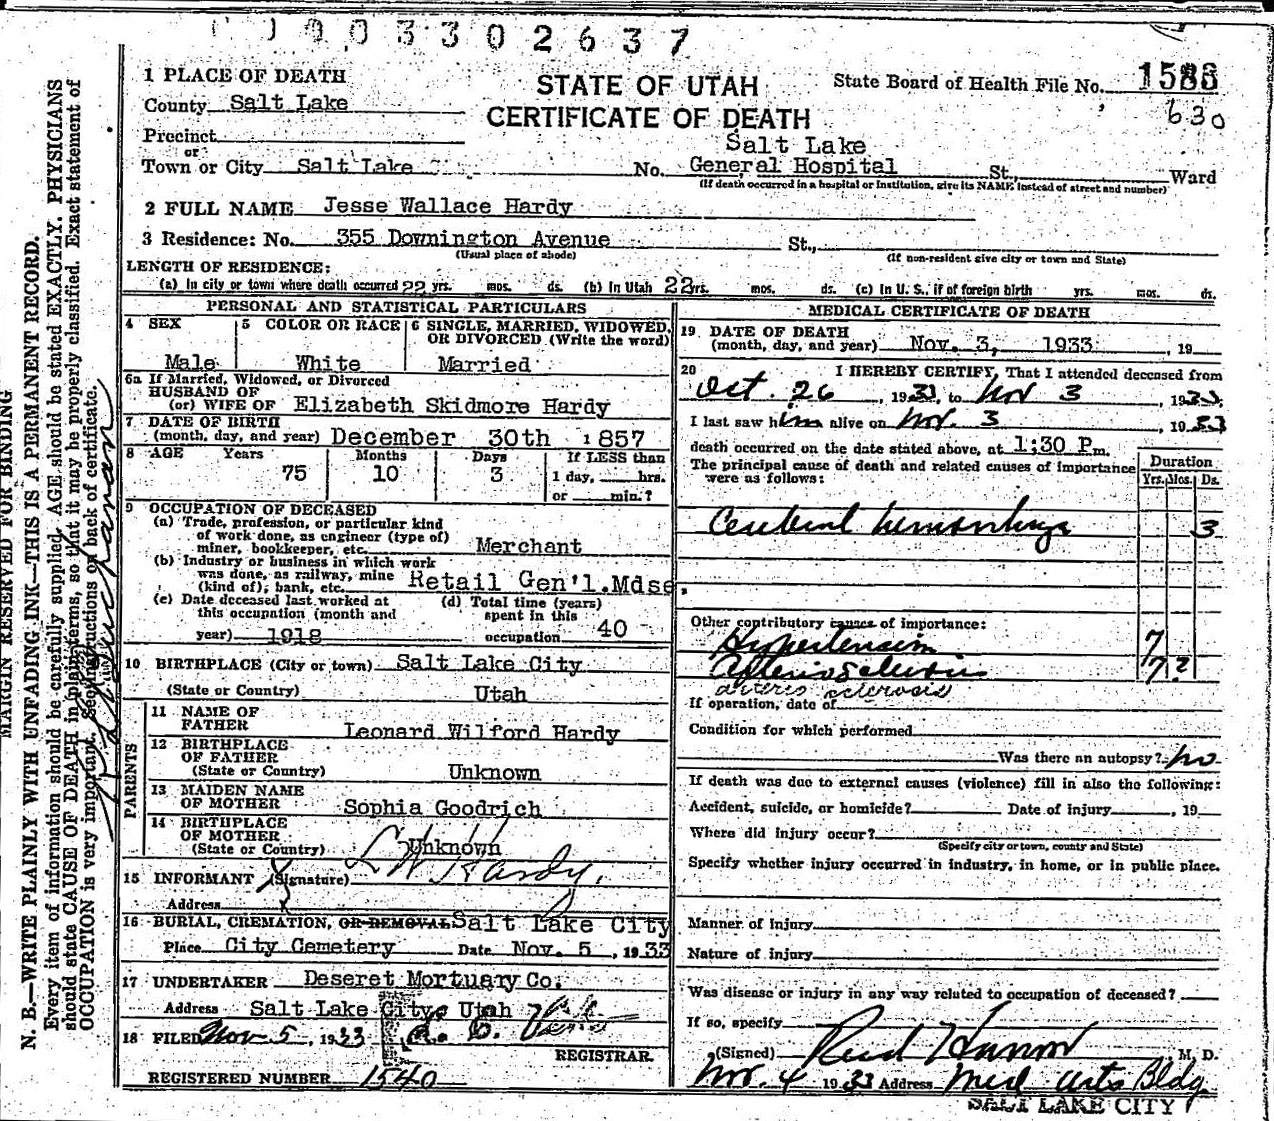 0 0 3 3 0 2 6 3 7
1 PLACE OF DEATH
County Salt Lake
Precinct
or
Town or City Salt Lake
STATE OF UTAH
CERTIFICATE OF DEATH
State Board of Health File No. 1583
630
Salt Lake
No. General Hospital St., Ward
(If death occurred in a hospital or institution, give its NAME instead of street and number)
2 FULL NAME Jesse Wallace Hardy
3 Residence: No. 355 Downington Avenue St.,
(Usual place of abode) (If non-resident give city or town and State)
LENGTH OF RESIDENCE:
(a) In city or town where death occurred 22 yrs. mos. ds. (b) In Utah 22 yrs. mos. ds. (c) In U. S., if of foreign birth yrs. mos. ds.
PERSONAL AND STATISTICAL PARTICULARS
4 SEX
Male
5 COLOR OR RACE
White
6 SINGLE, MARRIED, WIDOWED,
OR DIVORCED (Write the word)
Married
6a If Married, Widowed, or Divorced
HUSBAND OF
(or) WIFE OF Elizabeth Skidmore Hardy
7 DATE OF BIRTH
(month, day, and year) December 30th 1857
8 AGE Years Months Days If LESS than
75 10 3 1 day, hrs.
or min.?
9 OCCUPATION OF DECEASED
(a) Trade, profession, or particular kind
of work done, as engineer (type of)
miner, bookkeeper, etc. Merchant
(b) Industry or business in which work
was done, as railway, mine
(kind of), bank, etc. Retail Gen'l.Mdse.
(c) Date deceased last worked at
this occupation (month and
year) 1918
(d) Total time (years)
spent in this
occupation 40
10 BIRTHPLACE (City or town) Salt Lake City
(State or Country) Utah
PARENTS
11 NAME OF
FATHER Leonard Wilford Hardy
12 BIRTHPLACE
OF FATHER
(State or Country) Unknown
13 MAIDEN NAME
OF MOTHER Sophia Goodrich
14 BIRTHPLACE
OF MOTHER
(State or Country) Unknown
15 INFORMANT (Signature) L W Hardy.
Address
16 BURIAL, CREMATION, OR REMOVAL Salt Lake City
Place City Cemetery Date Nov. 5, 1933
17 UNDERTAKER Deseret Mortuary Co.
Address Salt Lake City, Utah
18 FILED Nov. 5, 1933
REGISTRAR.
REGISTERED NUMBER 1540
MEDICAL CERTIFICATE OF DEATH
19 DATE OF DEATH
(month, day, and year) Nov. 3, 1933, 19
20 I HEREBY CERTIFY, That I attended deceased from
Oct. 26, 1933, to Nov 3, 1933,
I last saw him alive on Nov. 3, 1933
death occurred on the date stated above, at 1:30 P.m.
The principal cause of death and related causes of importance
were as follows:
Duration
Yrs. Mos. Ds.
Cerebral hemorrhage 3
Other contributory causes of importance:
Hypertension 7
Arteriosclerosis 7?
arterio sclerosis
If operation, date of
Condition for which performed
Was there an autopsy? no
If death was due to external causes (violence) fill in also the following:
Accident, suicide, or homicide? Date of injury , 19
Where did injury occur?
(Specify city or town, county and State)
Specify whether injury occurred in industry, in home, or in public place.
Manner of injury
Nature of injury
Was disease or injury in any way related to occupation of deceased?
If so, specify
(Signed) M. D.
Nov. 4 1933 Address Med Arts Bldg.
SALT LAKE CITY
MARGIN RESERVED FOR BINDING
N. B.—WRITE PLAINLY WITH UNFADING INK—THIS IS A PERMANENT RECORD.
Every item of information should be carefully supplied. AGE should be stated EXACTLY. PHYSICIANS
should state CAUSE OF DEATH in plain terms, so that it may be properly classified. Exact statement of
OCCUPATION is very important. See instructions on back of certificate.